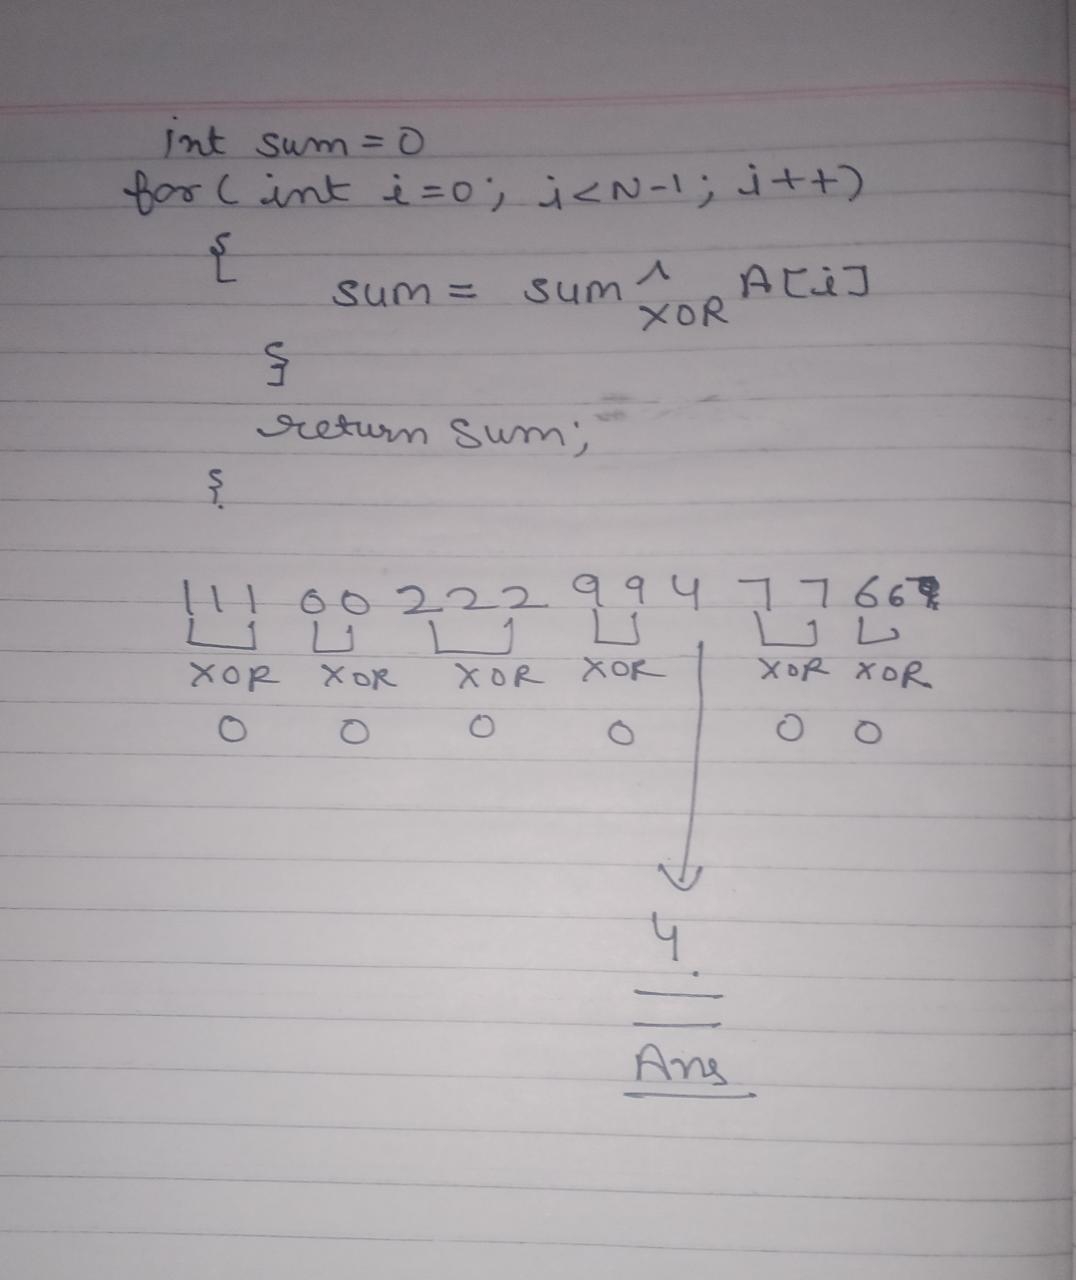 int sum = 0
for ( int i = 0; i < N-1; i++)
{
sum = sum ^ A[i]
XOR
}
return sum;
}
111 00 222 99 4 77 66
XOR XOR XOR XOR XOR XOR
0 0 0 0 0 0
4.
Ans